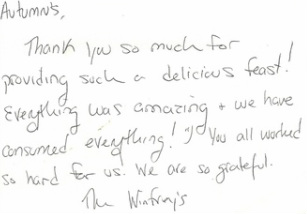 Autumn's,
Thank you so much for
providing such a delicious feast!
Everything was amazing + we have
consumed everything! :) You all worked
so hard for us. We are so grateful.
The Winfrey's